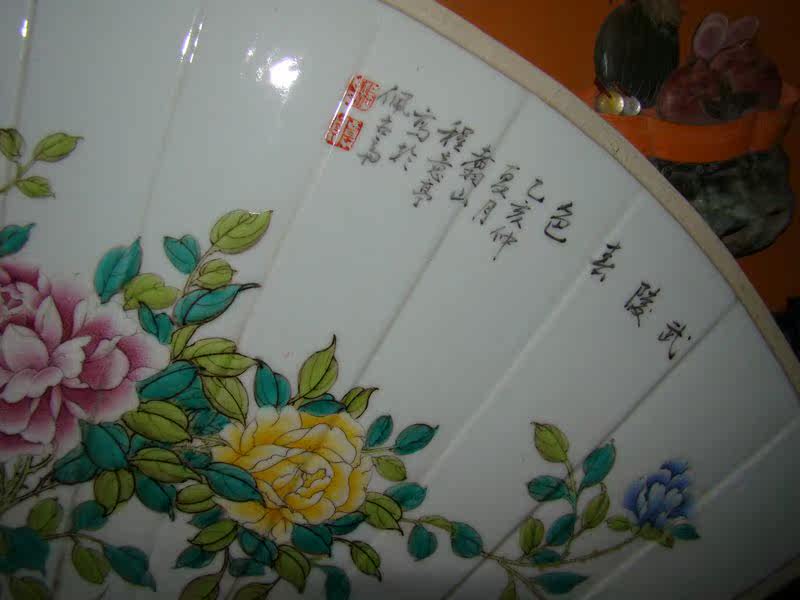 武陵春色
乙亥仲
夏月
翥山
程意亭
寫於
佩古齋